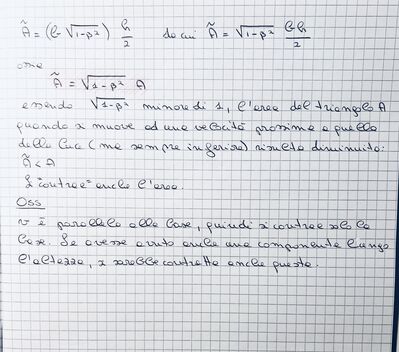 Ã = (b √1-β²) h/2 da cui Ã = √1-β² bh/2
ossia
Ã = √1-β² A
essendo √1-β² minore di 1, l'area del triangolo A
quando si muove ad una velocità prossima a quella
della luce (ma sempre inferiore) risulta diminuita:
Ã < A
Si "contrae" anche l'area.
Oss
v è parallela alla base, quindi si contrae solo la
base. Se avesse avuto anche una componente lungo
l'altezza, si sarebbe contratta anche questa.